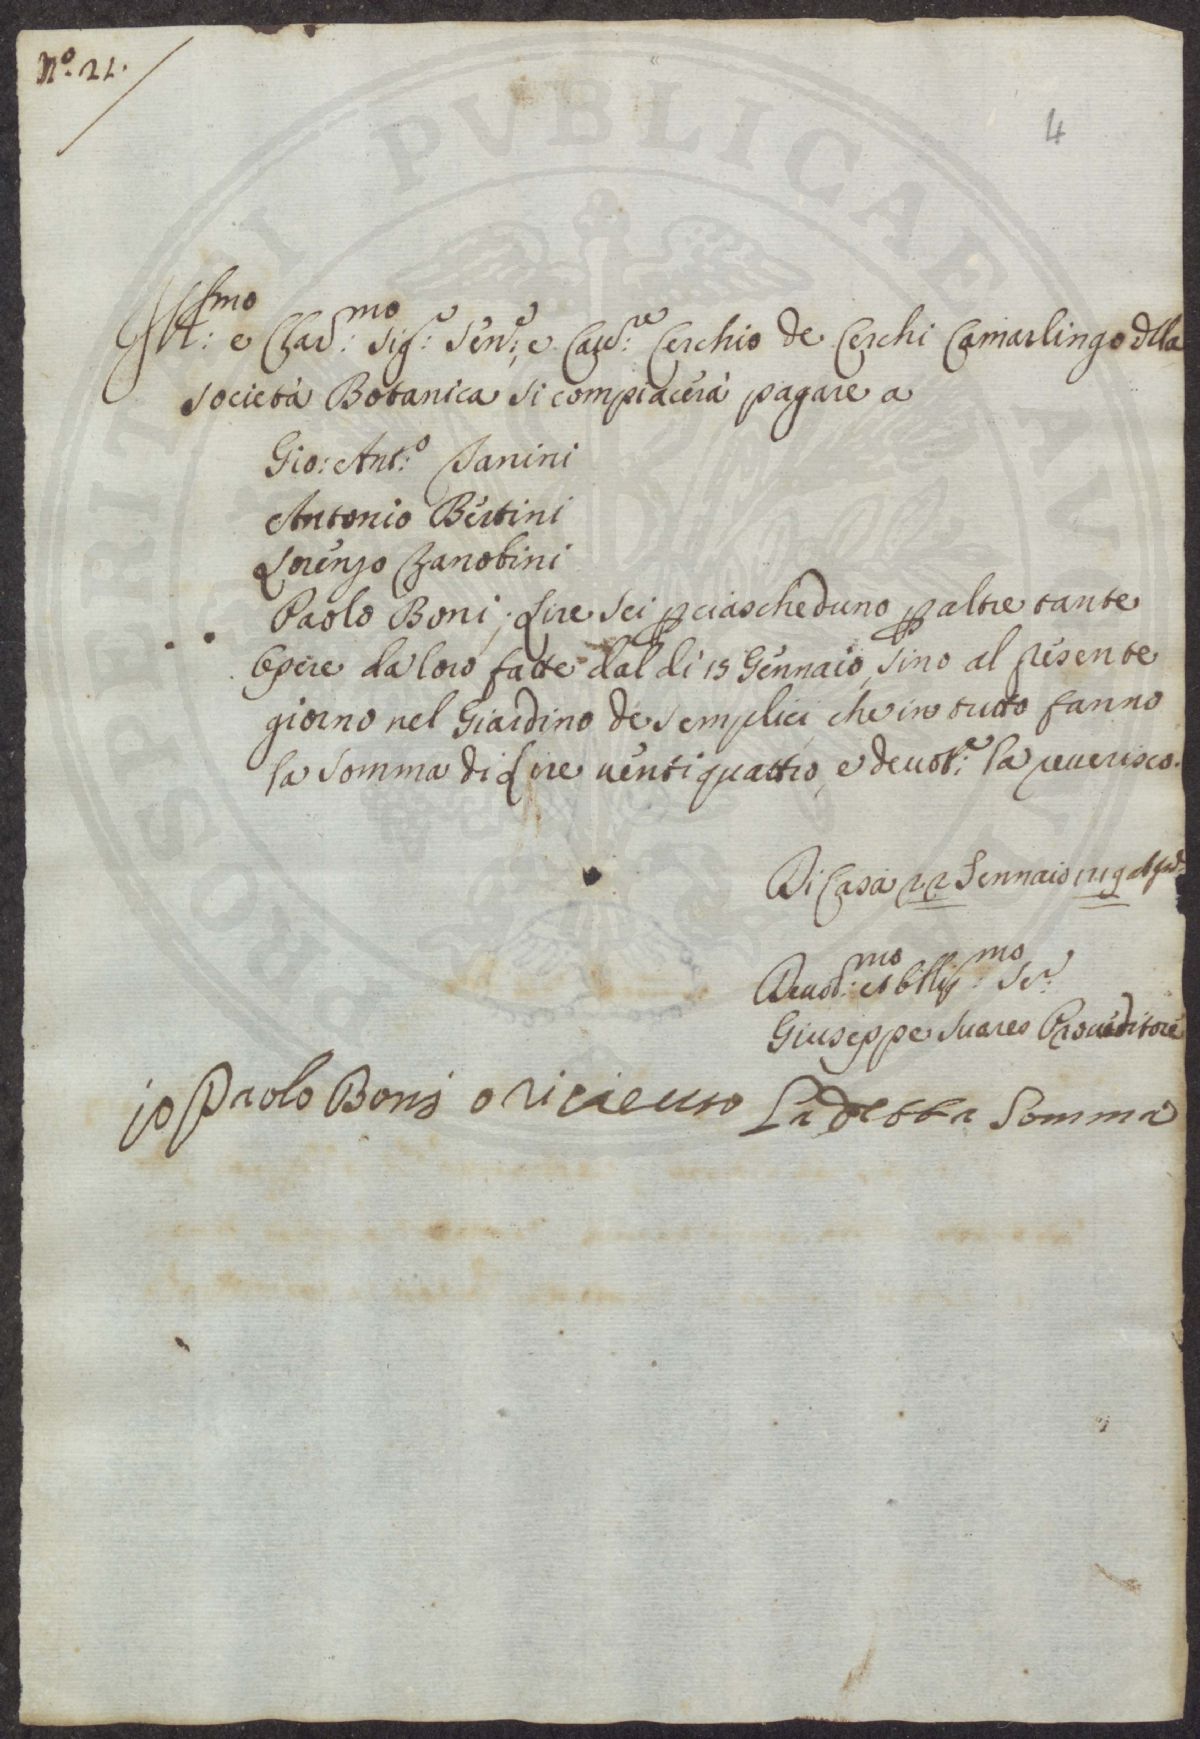 N.º 21.
4
Ill:mo e Clar:mo Sig:e Sen:e e Cau:re Cerchio de Cerchi Camarlingo dlla
Società Botanica si compiacerà pagare a
Gio: Ant:o Panini
Antonio Bertini
Lorenzo Zanobini
Paolo Boni; Lire sei p ciascheduno p altre tante
Opere da loro fatte dal di 15 Gennaio, sino al presente
giorno nel Giardino de Semplici, che in tutto fanno
la somma di Lire uentiquattro, e deuot:e la reuerisco.
Di Casa 22 Gennaio 1719
Deuot:mo et Obblig:mo Se:r
Giuseppe Suares Proueditore
io Paolo Boni o riceuuto La detta somma
PROSPERITATI PVBLICAE